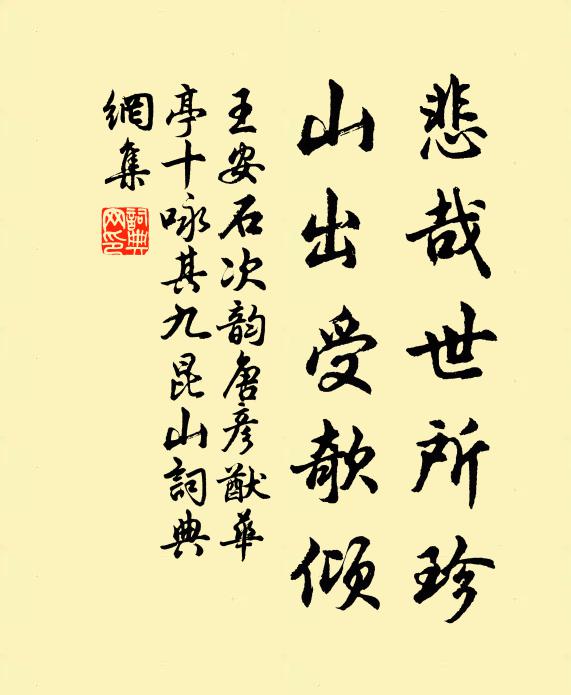 悲哉世所珍
山出受欹傾
王安石次韵唐彦猷華
亭十咏其九昆山詞典
網集
詞典網印